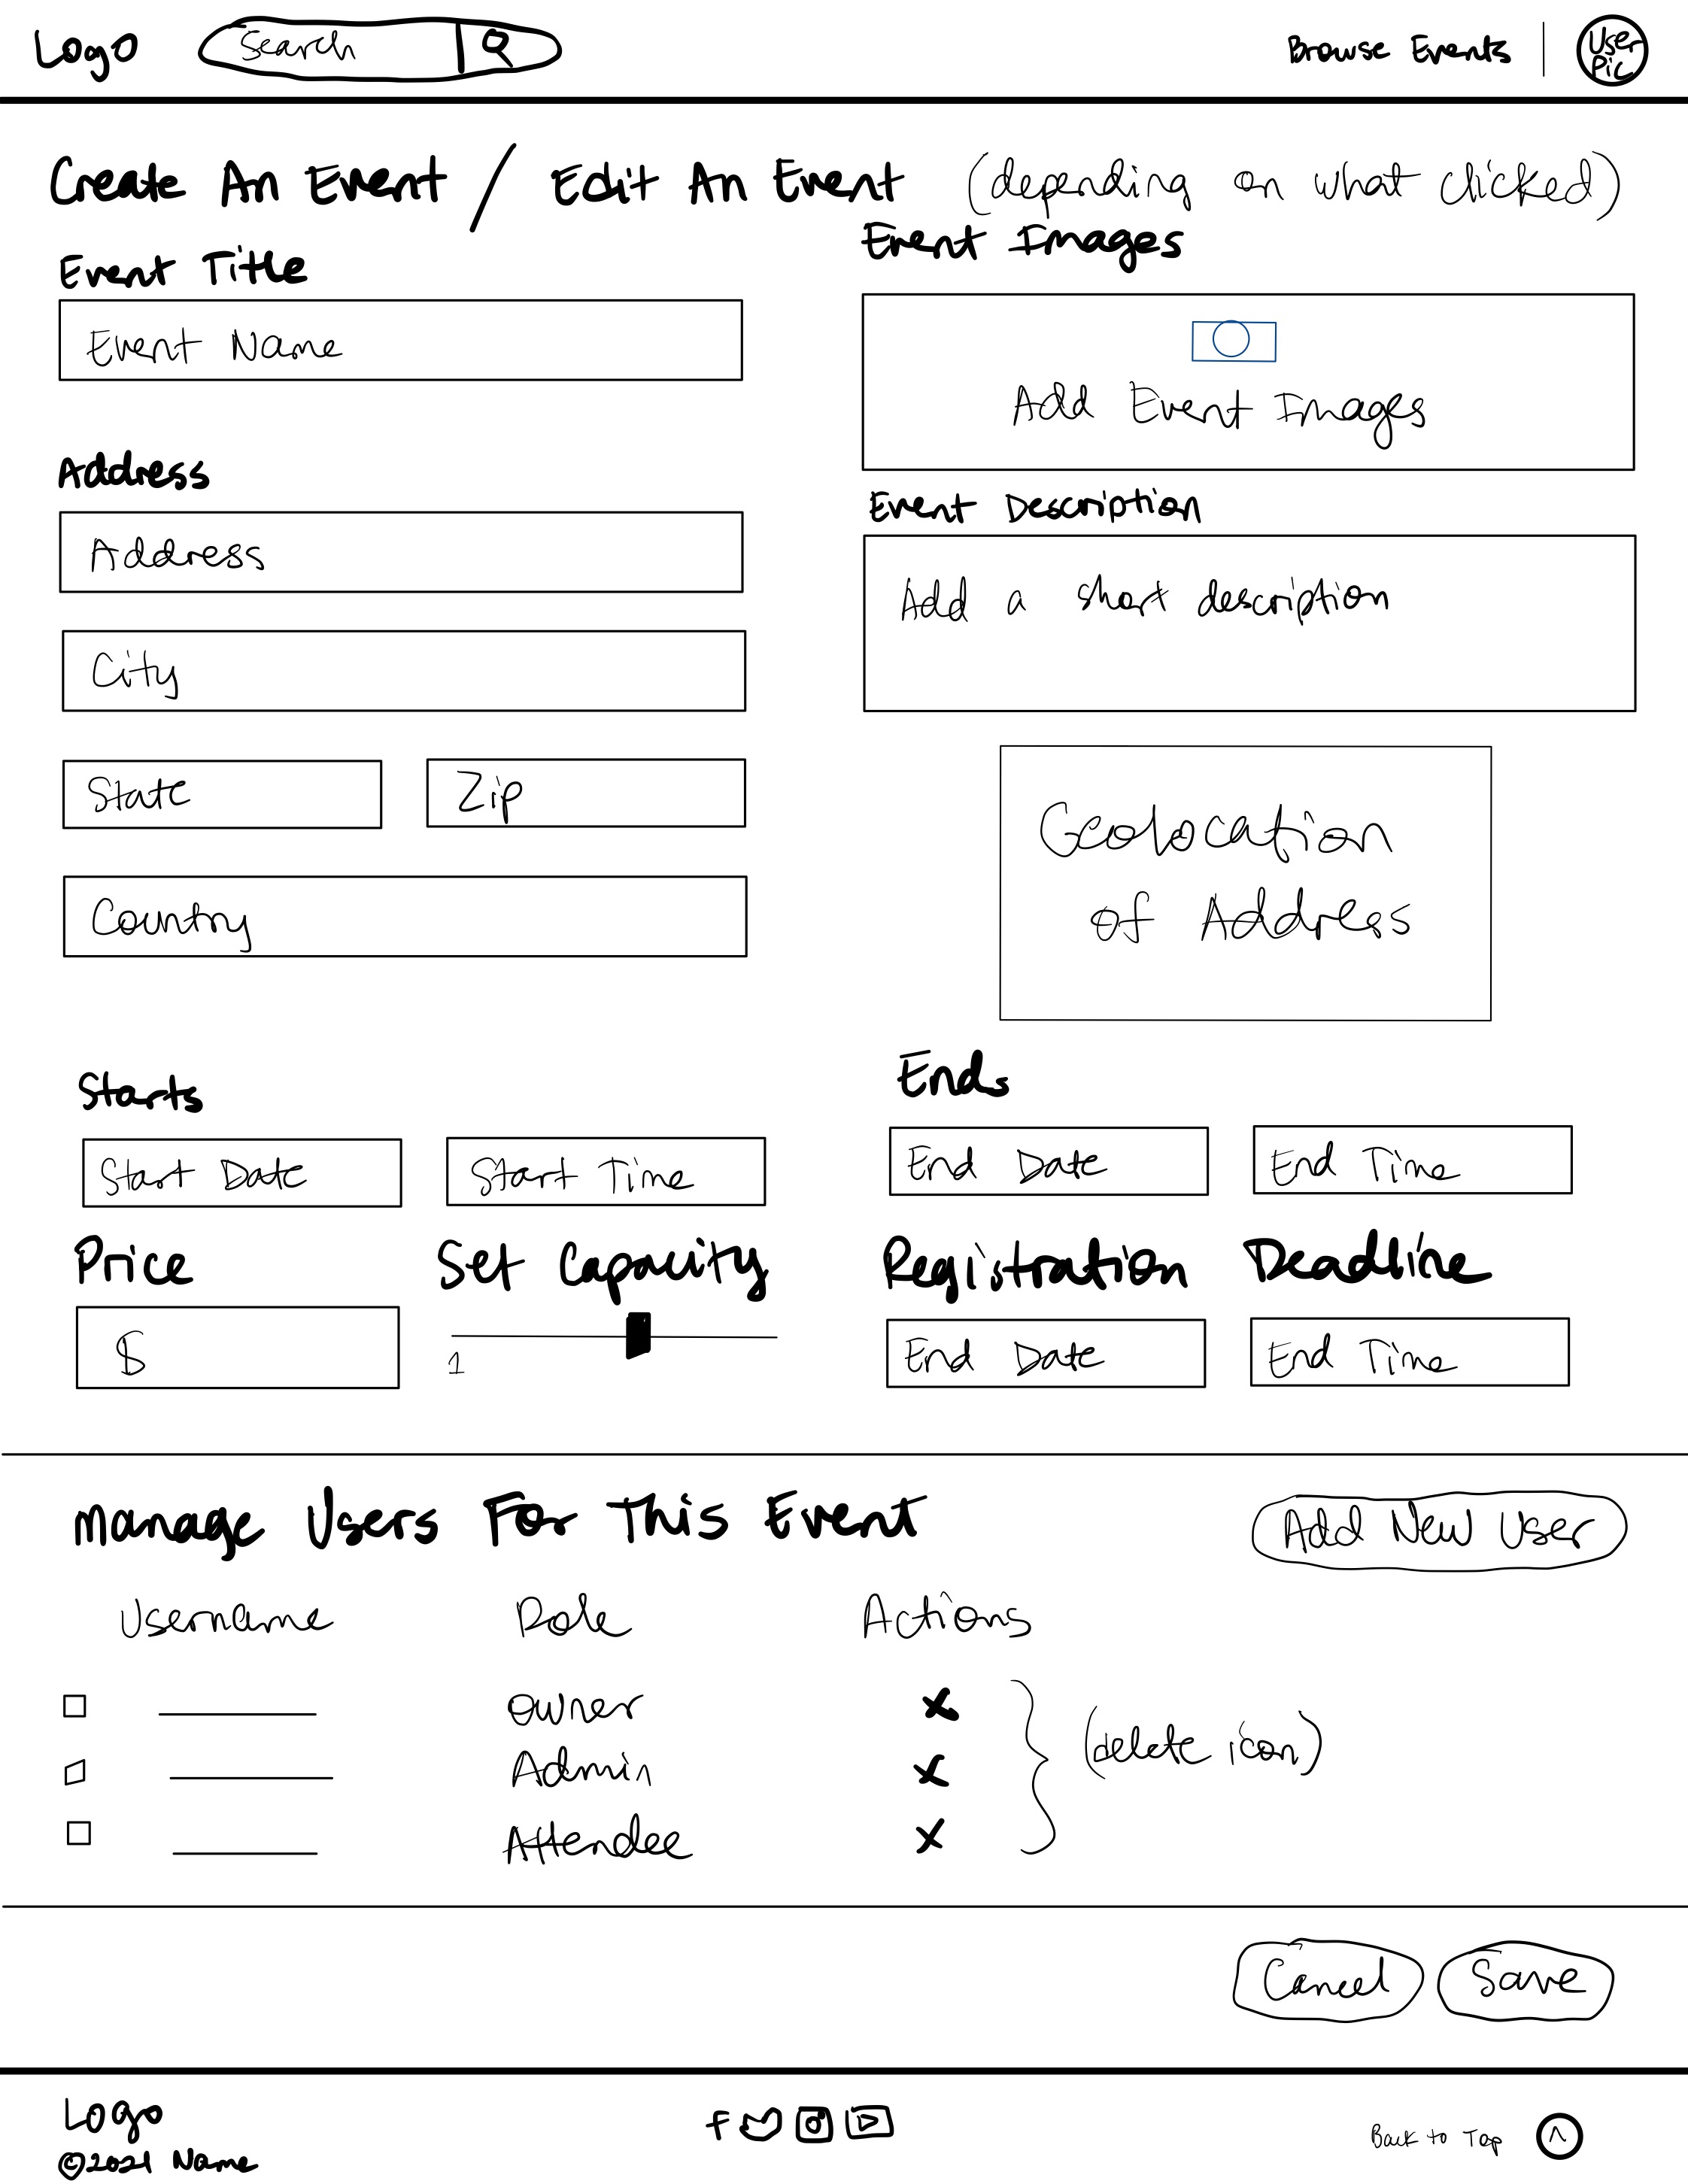 Logo
Search
Browse Events
User Pic
Create An Event / Edit An Event (depending on what clicked)
Event Title
Event Name
Address
Address
City
State Zip
Country
Event Images
Add Event Images
Event Description
Add a short description
Geolocation
of Address
Starts
Start Date Start Time
Ends
End Date End Time
Price
$
Set Capacity
1
Registration Deadline
End Date End Time
Manage Users For This Event
Add New User
Username Role Actions
Owner X
Admin X
Attendee X
(delete icon)
Cancel Save
Logo
©2021 Name
Back to Top